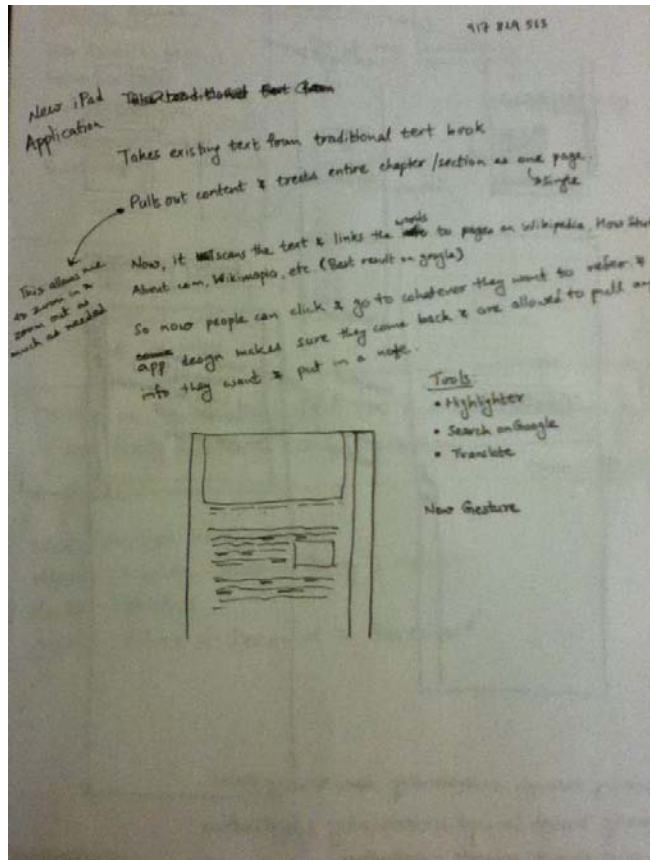 917 829 563
New iPad
Application
Takes existing text from traditional text book
• Pulls out content & treats entire chapter/section as one page.
single
This allows me
to zoom in &
zoom out as
much as needed
Now, it scans the text & links the words to pages on Wikipedia, How Stu
About com, Wikimapia, etc (Best result on google)
So now people can click & go to whatever they want to refer &
app design makes sure they come back & are allowed to pull any
info they want & put in a note.
Tools
• Highlighter
• Search on Google
• Translate
New Gesture